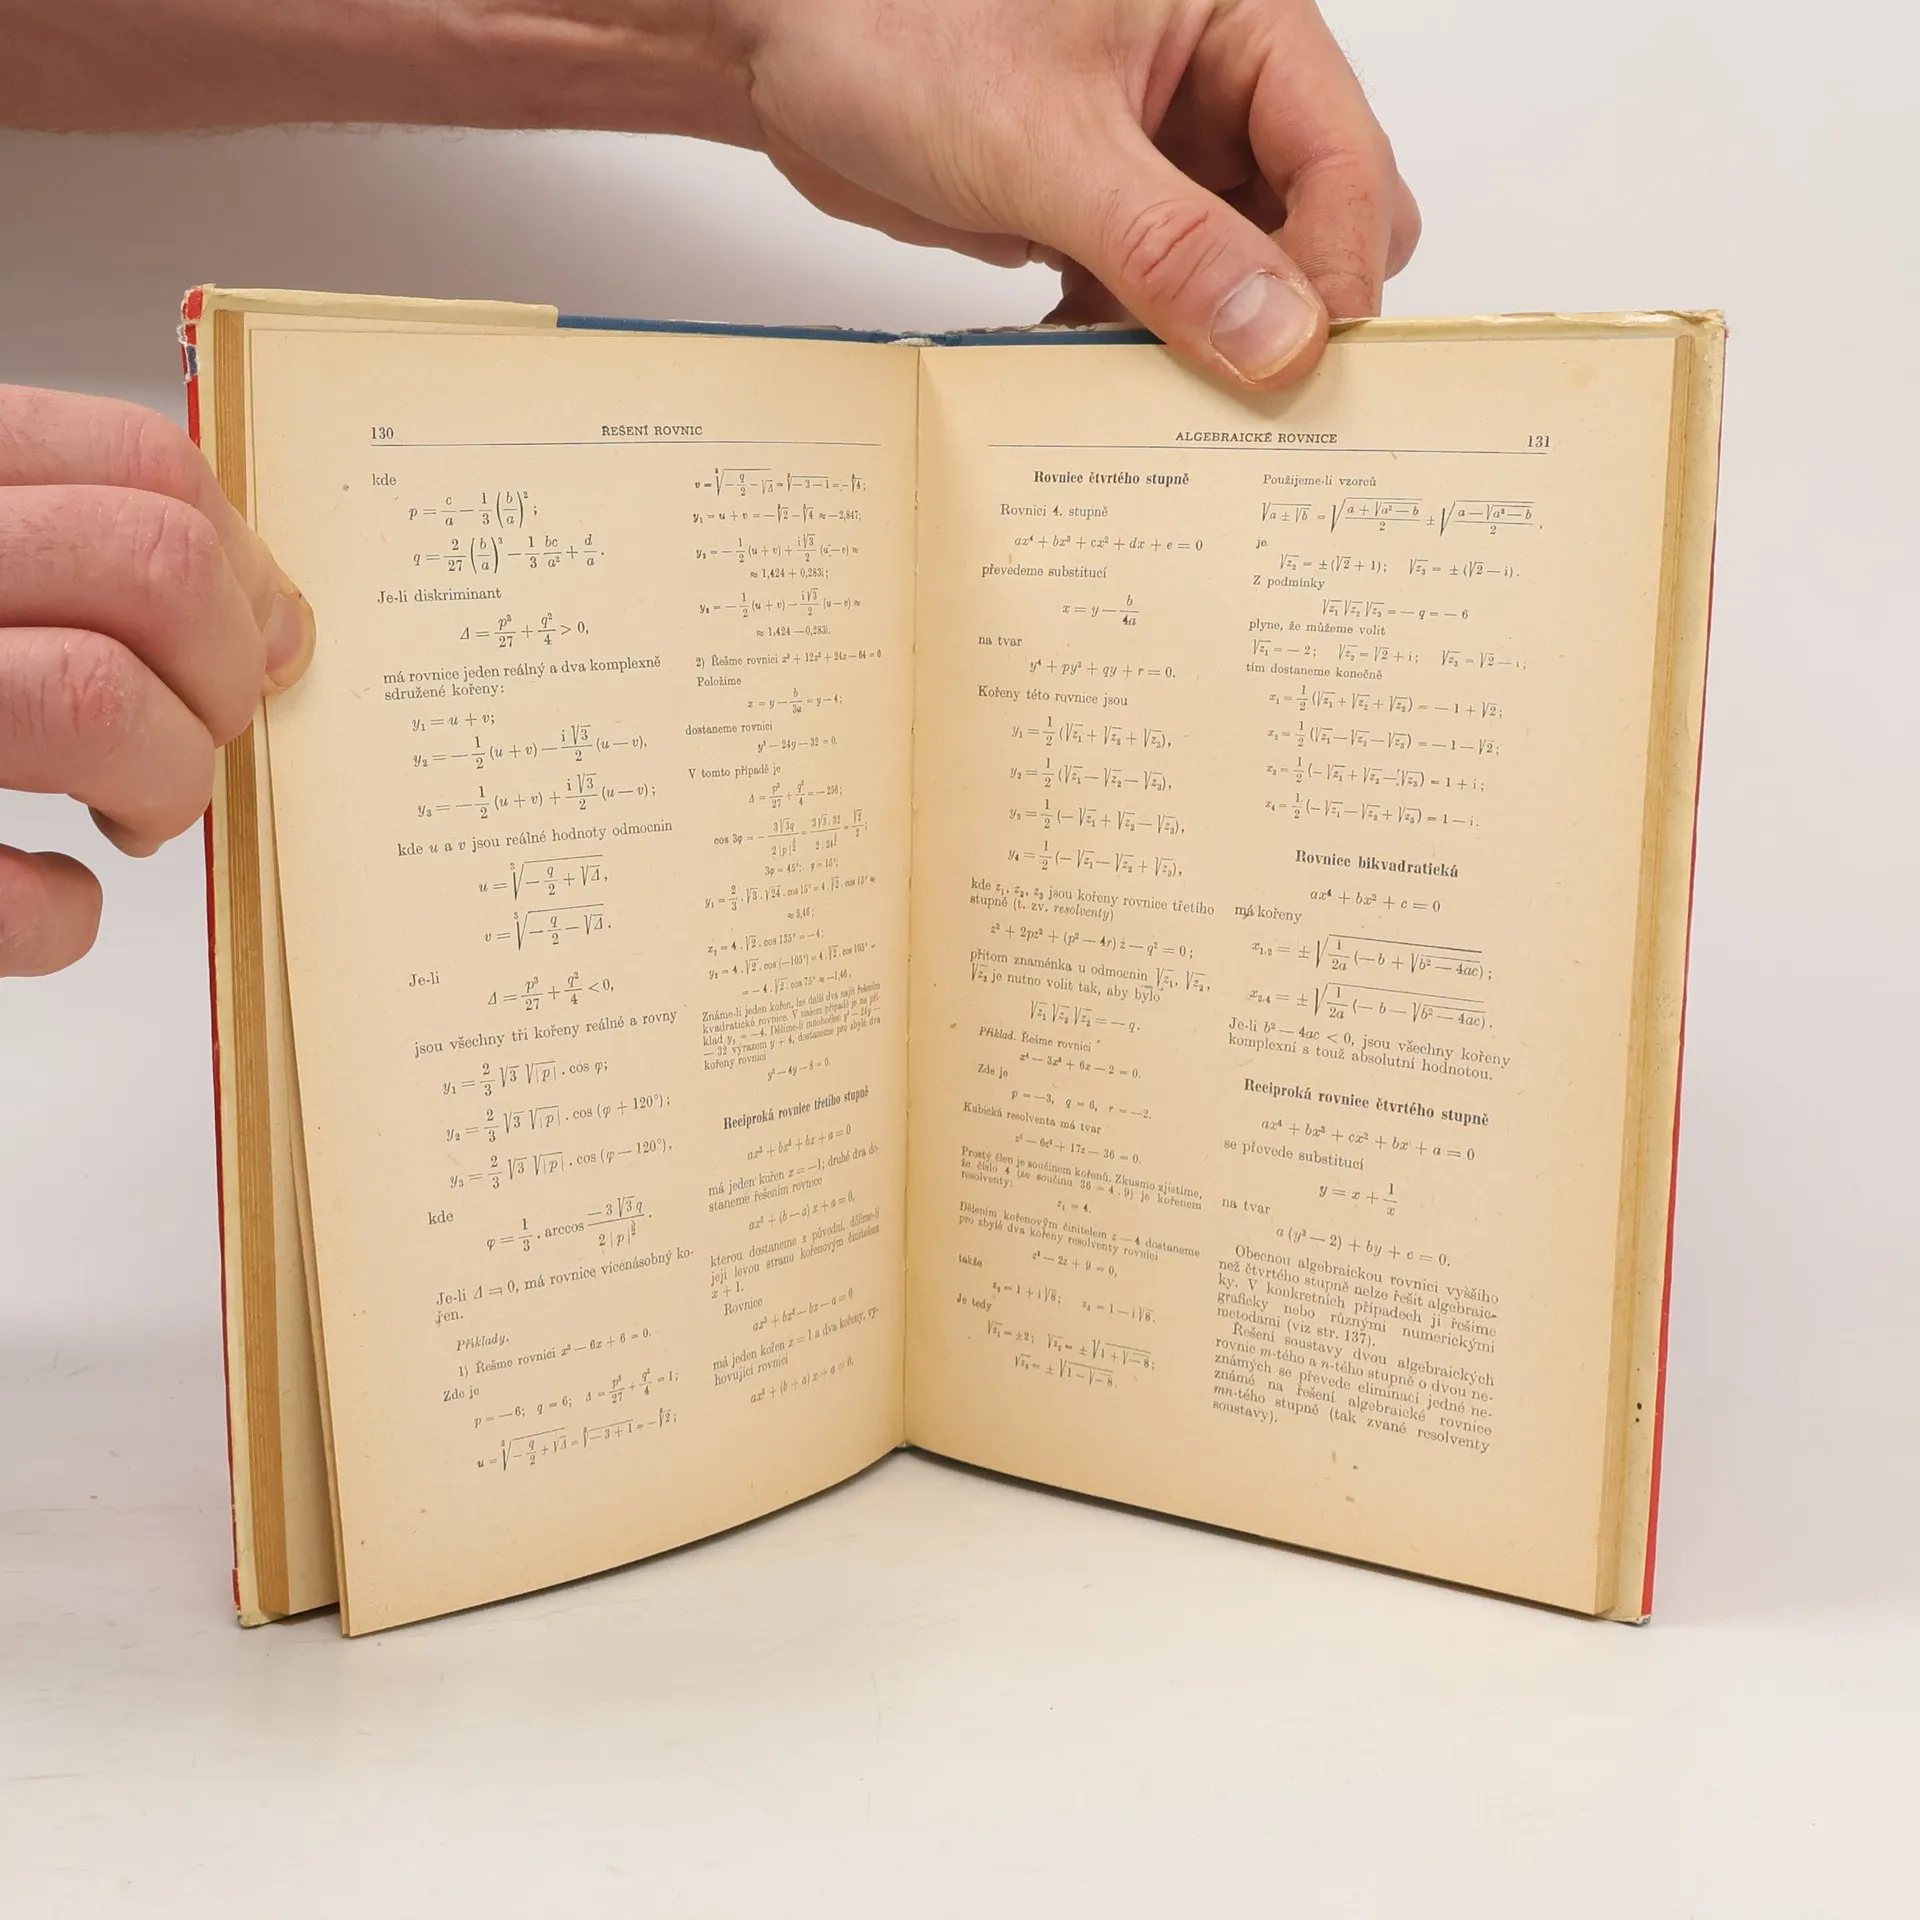 130
ŘEŠENÍ ROVNIC
kde
p = c/a − 1/3 (b/a)²;
q = 2/27 (b/a)³ − 1/3 bc/a² + d/a.
Je-li diskriminant
Δ = p³/27 + q²/4 > 0,
má rovnice jeden reálný a dva komplexně
sdružené kořeny:
y₁ = u + v;
y₂ = − 1/2 (u + v) − i√3/2 (u − v),
y₃ = − 1/2 (u + v) + i√3/2 (u − v);
kde u a v jsou reálné hodnoty odmocnin
u = ∛(− q/2 + √Δ),
v = ∛(− q/2 − √Δ).
Je-li
Δ = p³/27 + q²/4 < 0,
jsou všechny tři kořeny reálné a rovny
y₁ = 2/3 √3 √|p| . cos φ;
y₂ = 2/3 √3 √|p| . cos (φ + 120°);
y₃ = 2/3 √3 √|p| . cos (φ − 120°),
kde
φ = 1/3 . arccos −3√3q / 2|p|^(3/2) .
Je-li Δ = 0, má rovnice vícenásobný ko-
řen.
Příklady.
1) Řešme rovnici x³ − 6x + 6 = 0.
Zde je
p = −6; q = 6; Δ = p³/27 + q²/4 = 1;
u = ∛(− q/2 + √Δ) = ∛(−3 + 1) = −∛2;
v = ∛(− q/2 − √Δ) = ∛(−3 − 1) = −∛4;
y₁ = u + v = −∛2 − ∛4 ≈ −2,847;
y₂ = − 1/2 (u + v) + i√3/2 (u − v) ≈
≈ 1,424 + 0,283i;
y₃ = − 1/2 (u + v) − i√3/2 (u − v) ≈
≈ 1,424 − 0,283i.
2) Řešme rovnici x³ + 12x² + 24x − 64 = 0.
Položíme
x = y − b/3a = y − 4;
dostaneme rovnici
y³ − 24y − 32 = 0.
V tomto případě je
Δ = p³/27 + q²/4 = −256;
cos 3φ = − 3√3q / 2|p|^(3/2) = 3√3 . 32 / 2 . 24^(3/2) = √2/2;
3φ = 45°; φ = 15°;
y₁ = 2/3 . √3 . √24 . cos 15° = 4 . √2 . cos 15° ≈
≈ 5,46;
x₂ = 4 . √2 . cos 135° = −4;
y₃ = 4 . √2 . cos (−105°) = 4 . √2 . cos 105° =
= −4 . √2 . cos 75° ≈ −1,46.
Známe-li jeden kořen, lze další dva najít řešením
kvadratické rovnice. V našem případě je na pří-
klad y₂ = −4. Dělíme-li mnohočlen y³ − 24y −
− 32 výrazem y + 4, dostaneme pro zbylé dva
kořeny rovnici
y² − 4y − 8 = 0.
Reciproká rovnice třetího stupně
ax³ + bx² + bx + a = 0
má jeden kořen x = −1; druhé dva do-
staneme řešením rovnice
ax² + (b − a) x + a = 0,
kterou dostaneme z původní, dělíme-li
její levou stranu kořenovým činitelem
x + 1.
Rovnice
ax³ + bx² − bx − a = 0
má jeden kořen x = 1 a dva kořeny, vy-
hovující rovnici
ax² + (b + a) x + a = 0.
ALGEBRAICKÉ ROVNICE
131
Rovnice čtvrtého stupně
Rovnici 4. stupně
ax⁴ + bx³ + cx² + dx + e = 0
převedeme substitucí
x = y − b/4a
na tvar
y⁴ + py² + qy + r = 0.
Kořeny této rovnice jsou
y₁ = 1/2 (√z₁ + √z₂ + √z₃),
y₂ = 1/2 (√z₁ − √z₂ − √z₃),
y₃ = 1/2 (− √z₁ + √z₂ − √z₃),
y₄ = 1/2 (− √z₁ − √z₂ + √z₃),
kde z₁, z₂, z₃ jsou kořeny rovnice třetího
stupně (t. zv. resolventy)
z³ + 2pz² + (p² − 4r) z − q² = 0;
přitom znaménka u odmocnin √z₁, √z₂,
√z₃ je nutno volit tak, aby bylo
√z₁ √z₂ √z₃ = − q.
Příklad. Řešme rovnici
x⁴ − 3x² + 6x − 2 = 0.
Zde je
p = −3, q = 6, r = −2.
Kubická resolventa má tvar
z³ − 6z² + 17z − 36 = 0.
Prostý člen je součinem kořenů. Zkusmo zjistíme,
že číslo 4 (ze součinu 36 = 4 . 9) je kořenem
resolventy:
z₁ = 4.
Dělením kořenovým činitelem z − 4 dostaneme
pro zbylé dva kořeny resolventy rovnici
z² − 2z + 9 = 0,
takže
z₂ = 1 + i√8; z₃ = 1 − i√8.
Je tedy
√z₁ = ±2; √z₂ = ± √(1 + √−8);
√z₃ = ± √(1 − √−8).
Použijeme-li vzorců
√(a ± √b) = √((a + √(a² − b))/2) ± √((a − √(a² − b))/2),
je
√z₂ = ± (√2 + i); √z₃ = ± (√2 − i).
Z podmínky
√z₁ √z₂ √z₃ = − q = − 6
plyne, že můžeme volit
√z₁ = − 2; √z₂ = √2 + i; √z₃ = √2 − i;
tím dostaneme konečně
x₁ = 1/2 (√z₁ + √z₂ + √z₃) = − 1 + √2;
x₂ = 1/2 (√z₁ − √z₂ − √z₃) = − 1 − √2;
x₃ = 1/2 (− √z₁ + √z₂ − √z₃) = 1 + i;
x₄ = 1/2 (− √z₁ − √z₂ + √z₃) = 1 − i.
Rovnice bikvadratická
ax⁴ + bx² + c = 0
má kořeny
x₁,₂ = ± √(1/2a (− b + √(b² − 4ac)));
x₃,₄ = ± √(1/2a (− b − √(b² − 4ac))).
Je-li b² − 4ac < 0, jsou všechny kořeny
komplexní s touž absolutní hodnotou.
Reciproká rovnice čtvrtého stupně
ax⁴ + bx³ + cx² + bx + a = 0
se převede substitucí
y = x + 1/x
na tvar
a (y² − 2) + by + c = 0.
Obecnou algebraickou rovnici vyššího
než čtvrtého stupně nelze řešit algebraic-
ky. V konkretních případech ji řešíme
graficky nebo různými numerickými
metodami (viz str. 137).
Řešení soustavy dvou algebraických
rovnic m-tého a n-tého stupně o dvou ne-
známých se převede eliminací jedné ne-
známé na řešení algebraické rovnice
mn-tého stupně (tak zvané resolventy
soustavy).